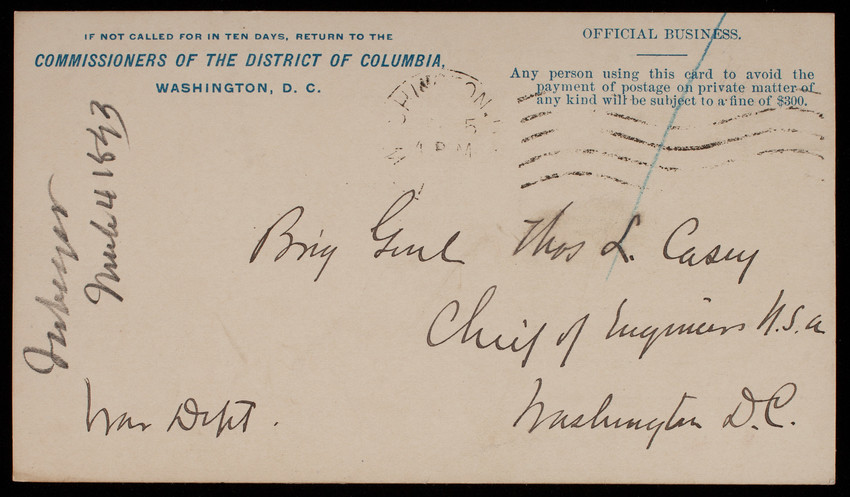 IF NOT CALLED FOR IN TEN DAYS, RETURN TO THE
COMMISSIONERS OF THE DISTRICT OF COLUMBIA,
WASHINGTON, D. C.
OFFICIAL BUSINESS.
Any person using this card to avoid the
payment of postage on private matter of
any kind will be subject to a fine of $300.
5
PM
March 4 1893
Brig Genl Thos L. Casey
Chief of Engineers U.S.A
War Dept.
Washington D.C.